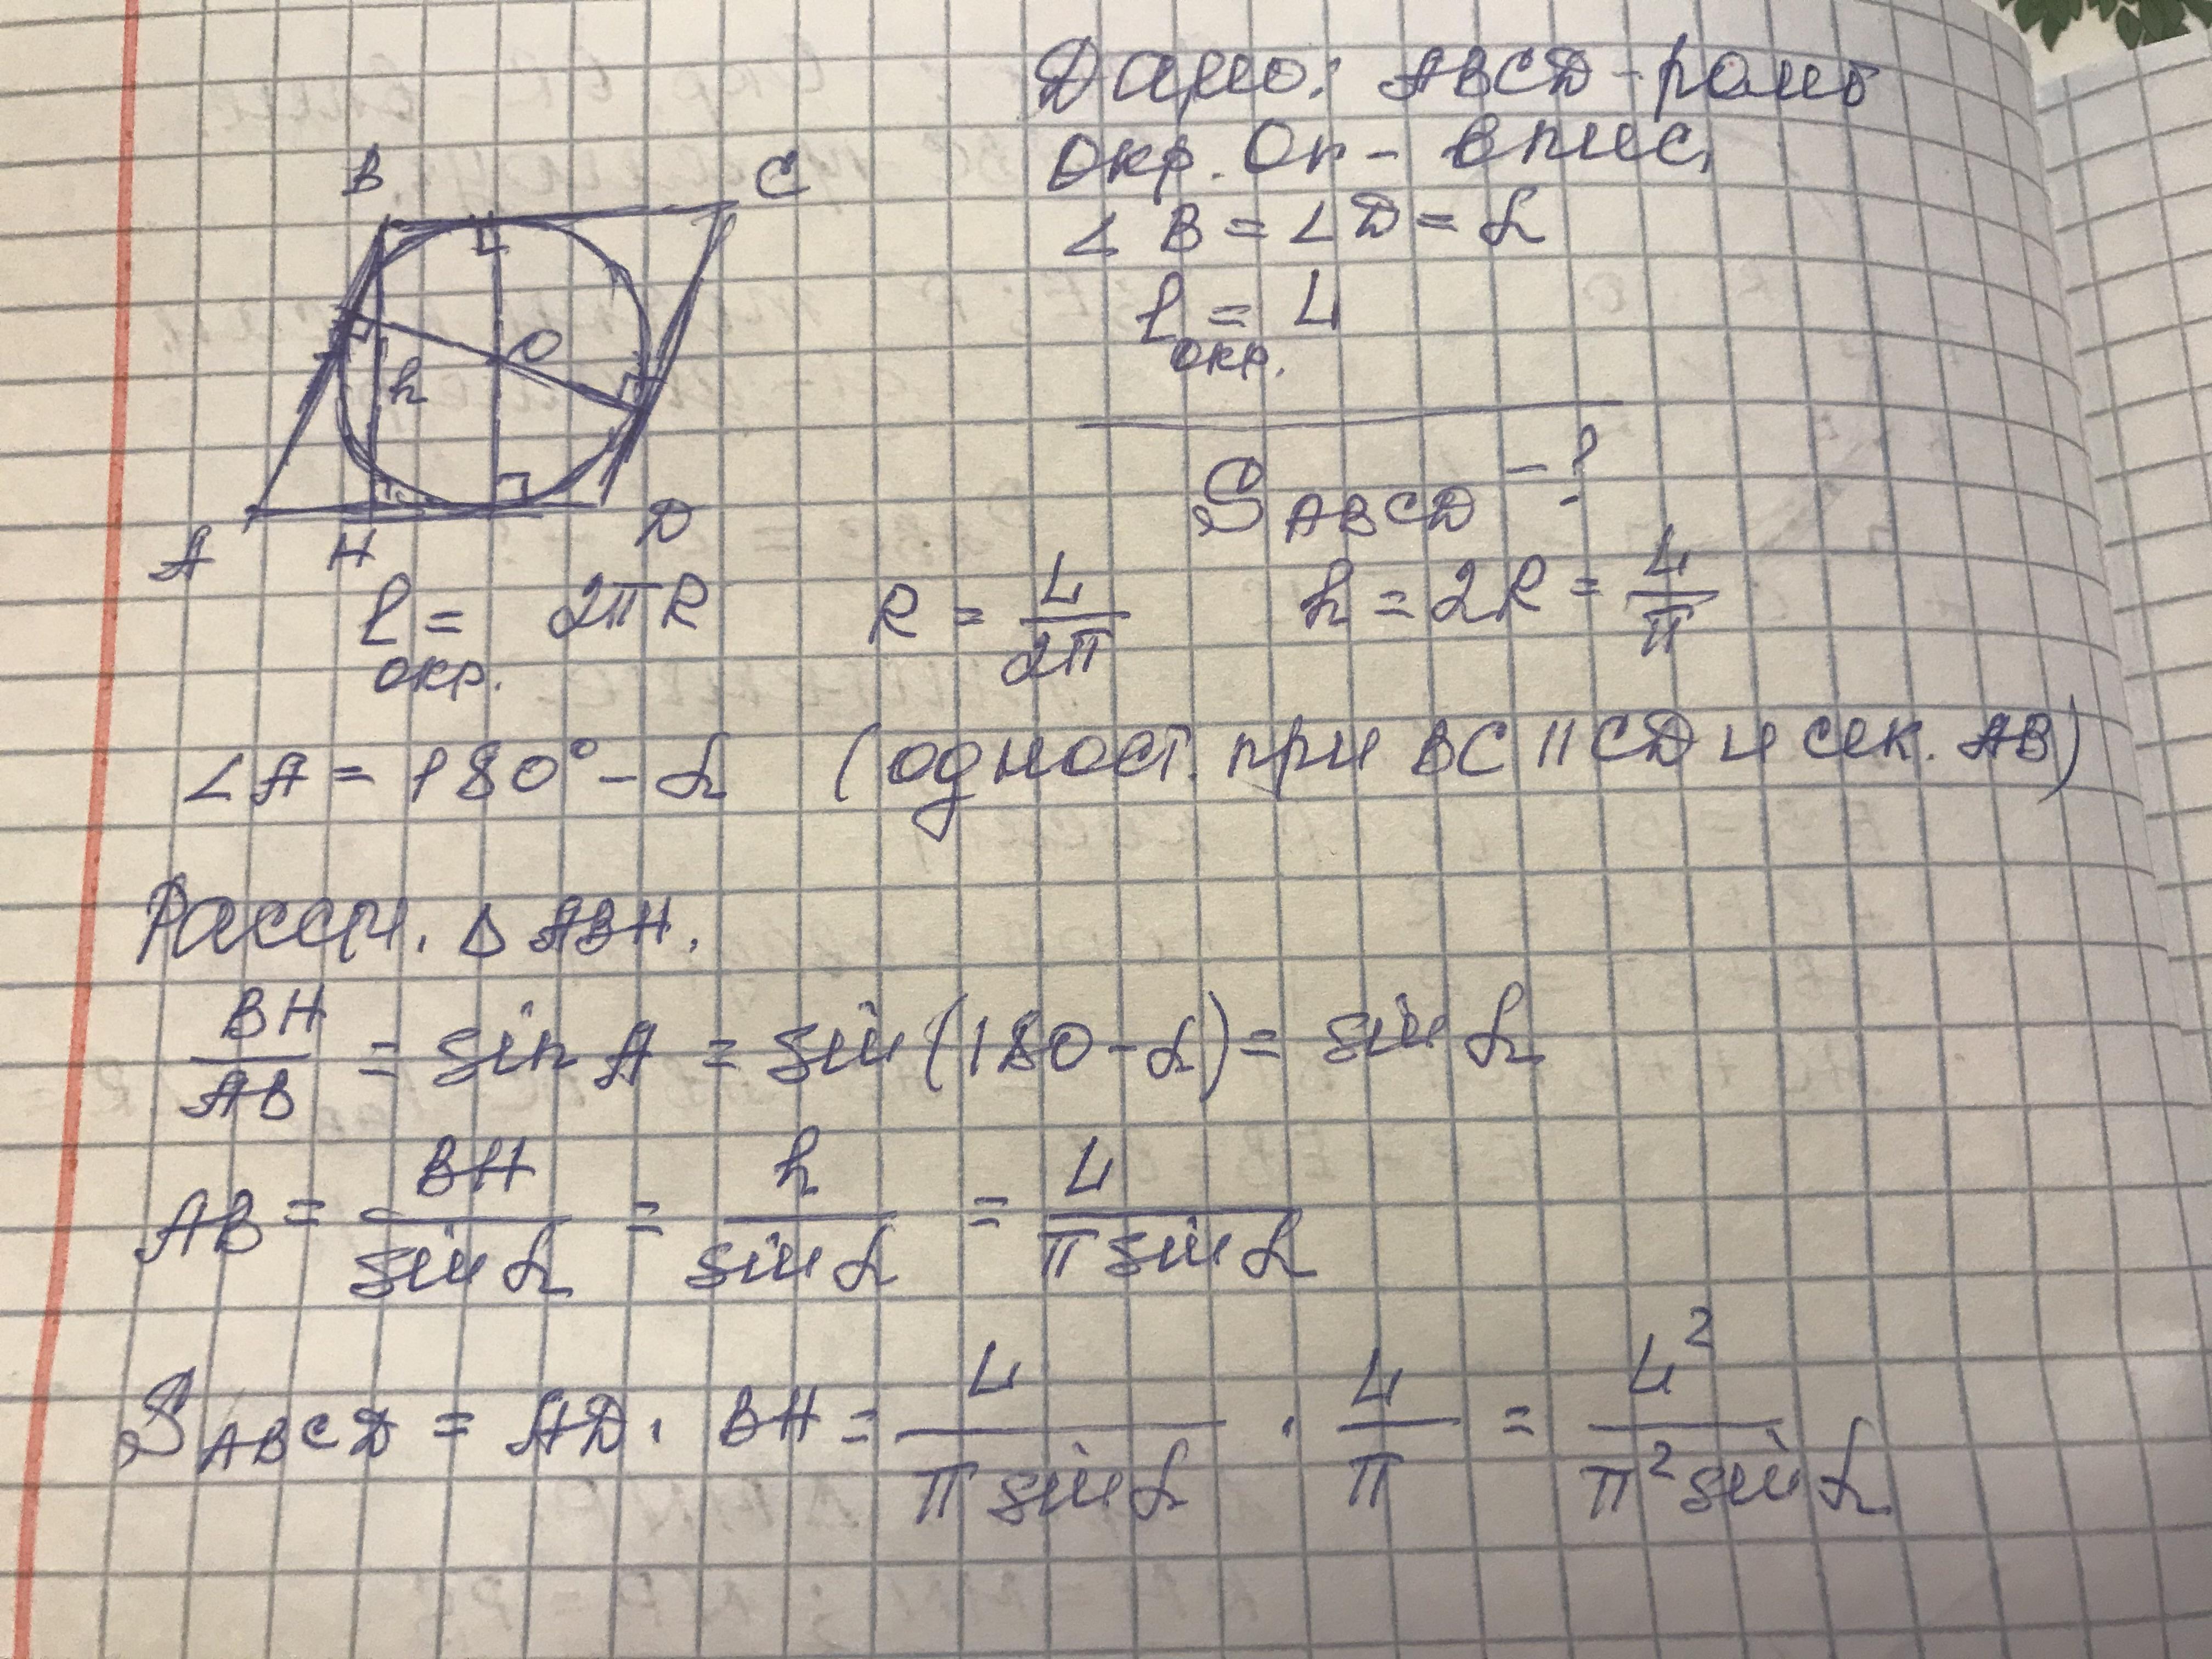 Дано: ABCD - ромб
Окр. Or - впис.
∠B = ∠D = α
ℓ окр. = L
S ABCD - ?
B
C
O
h
A
H
D
ℓ окр. = 2πR R = L/2π h = 2R = L/π
∠A = 180° - α (одност. при BC || CD и сек. AB)
Рассм. Δ ABH.
BH/AB = sin A = sin(180-α) = sin α
AB = BH/sin α = h/sin α = L/π sin α
S ABCD = AD · BH = L/π sin α · L/π = L²/π² sin α